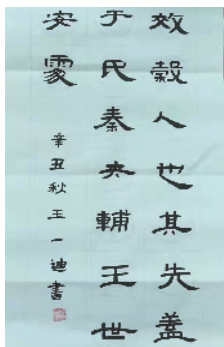 效穀人也其先蓋
于氏秦兼輔王世
安處
辛丑秋王一迪書